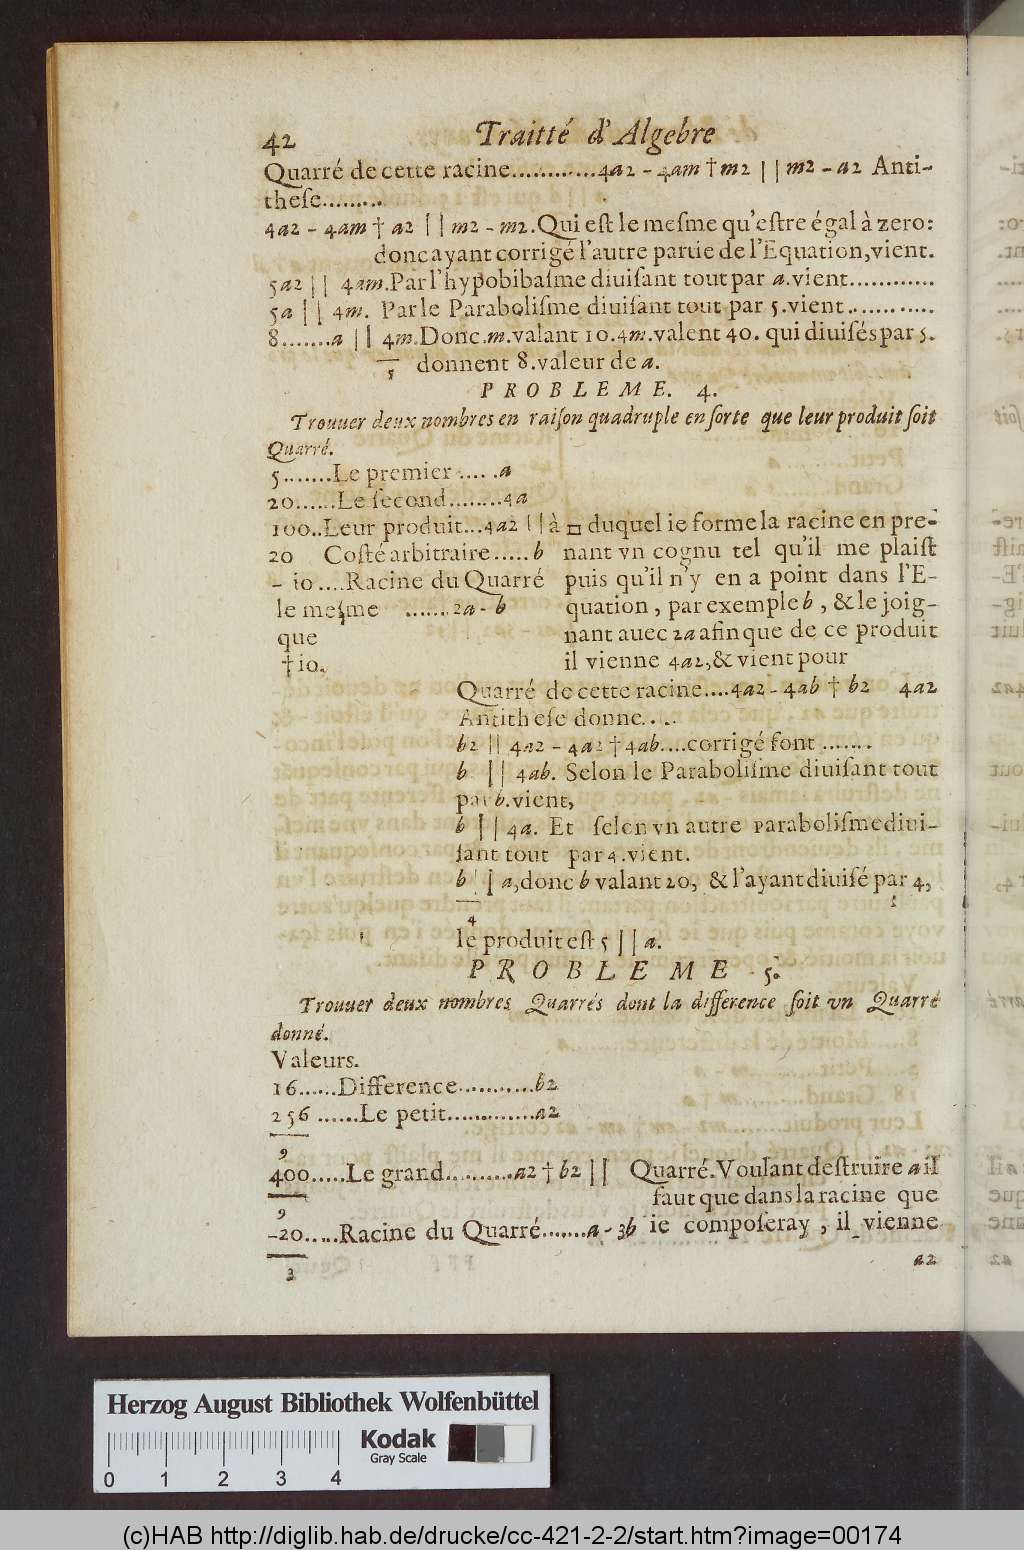 42 Traitté d'Algebre
Quarré de cette racine............4a2 - 4am † m2 || m2 - a2 Anti-
theſe.........
4a2 - 4am † a2 || m2 - m2. Qui eſt le meſme qu'eſtre égal à zero:
donc ayant corrigé l'autre partie de l'Equation, vient.
5a2 || 4am. Par l'hypobibaſme diuiſant tout par a. vient............
5a || 4m. Par le Paraboliſme diuiſant tout par 5. vient............
8.......a || 4m. Donc m. valant 10. 4m. valent 40. qui diuiſés par 5.
5 donnent 8. valeur de a.
PROBLEME. 4.
Trouuer deux nombres en raiſon quadruple en ſorte que leur produit ſoit
Quarré.
5........Le premier......a
20......Le ſecond........4a
100..Leur produit...4a2 || à □ duquel ie forme la racine en pre-
20 Coſté arbitraire.....b nant vn cognu tel qu'il me plaiſt
- 10....Racine du Quarré puis qu'il n'y en a point dans l'E-
le meſme .......2a - b quation, par exemple b, & le joig-
que nant auec 2a afin que de ce produit
† 10. il vienne 4a2, & vient pour
Quarré de cette racine....4a2 - 4ab † b2 4a2
Antitheſe donne....
b2 || 4a2 - 4a2 † 4ab....corrigé font .......
b || 4ab. Selon le Paraboliſme diuiſant tout
par b. vient,
b || 4a. Et ſelon vn autre paraboliſme diui-
ſant tout par 4. vient.
b || a, donc b valant 20, & l'ayant diuiſé par 4,
4
le produit eſt 5 || a.
PROBLEME 5.
Trouuer deux nombres Quarrés dont la difference ſoit vn Quarré
donné.
Valeurs.
16......Difference...........b2
256......Le petit.............a2
9
400.....Le grand..........a2 † b2 || Quarré. Voulant deſtruire a il
9 faut que dans la racine que
-20.....Racine du Quarré.......a - 3b ie compoſeray, il vienne
3 a2
Herzog August Bibliothek Wolfenbüttel
0 1 2 3 4
Kodak
Gray Scale
(c)HAB http://diglib.hab.de/drucke/cc-421-2-2/start.htm?image=00174